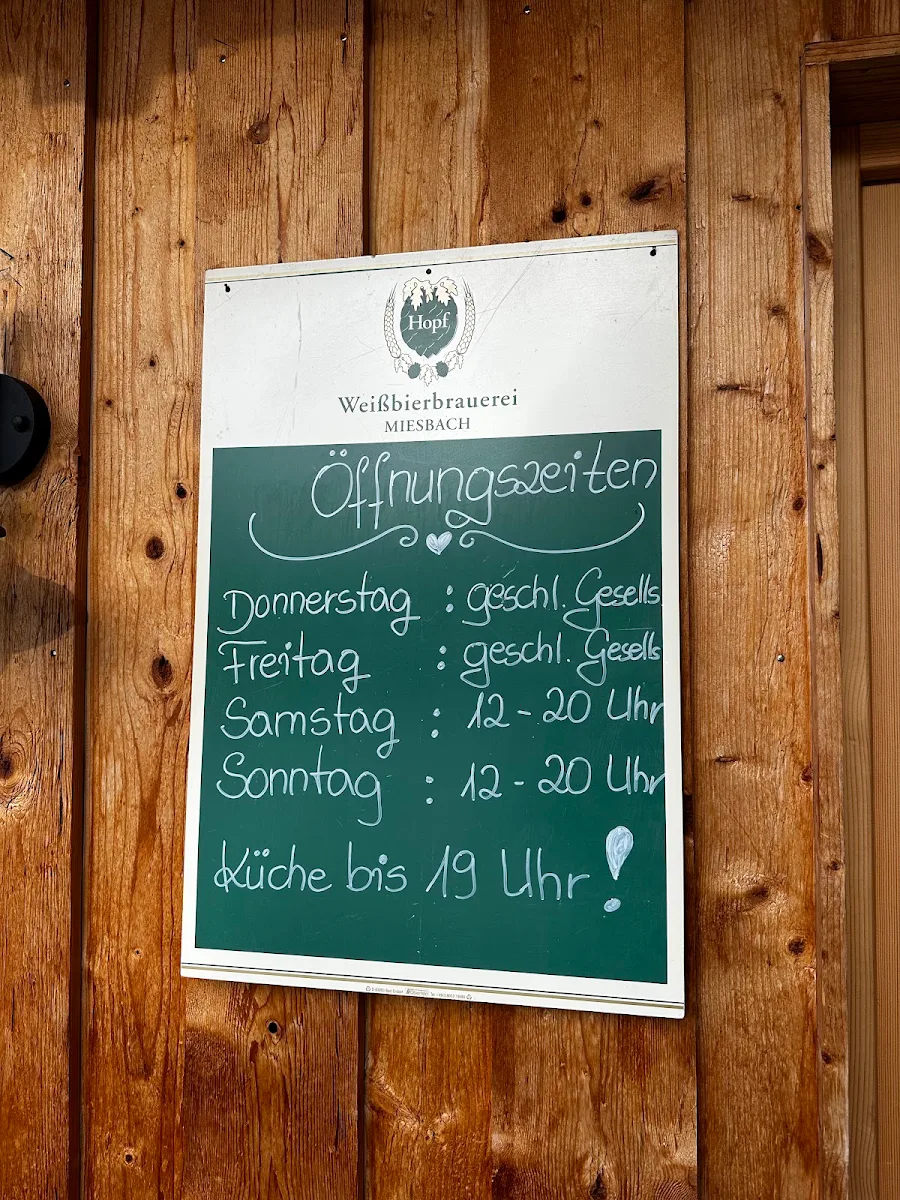 Hopf
Weißbierbrauerei
MIESBACH
Öffnungszeiten
Donnerstag : geschl. Gesells.
Freitag : geschl. Gesells
Samstag : 12-20 Uhr
Sonntag : 12-20 Uhr
Küche bis 19 Uhr!